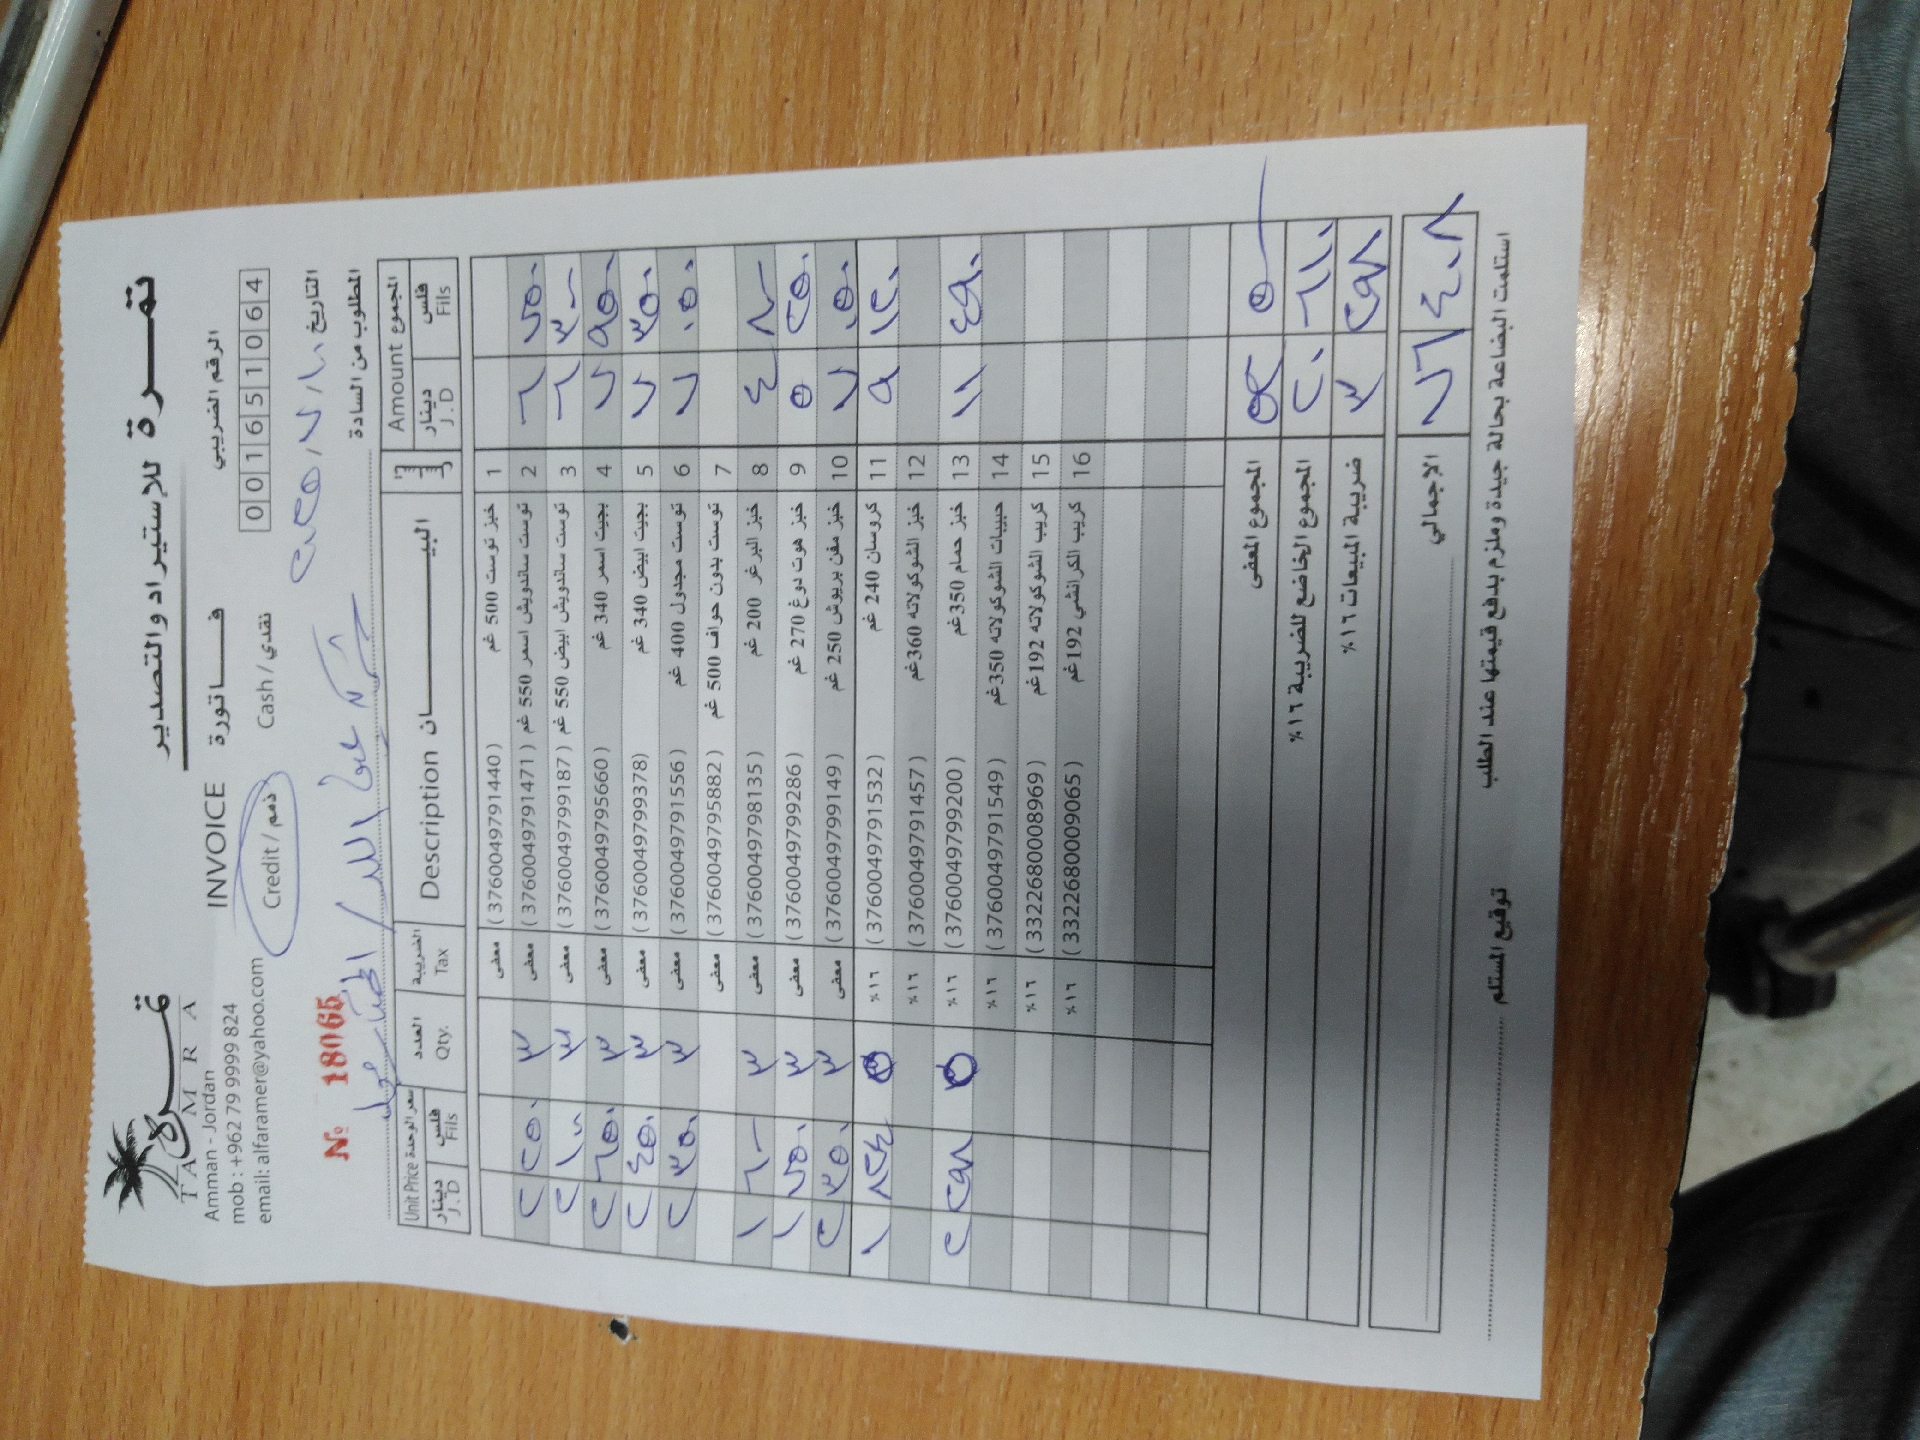 تمرة للإستيراد والتصدير
تمرة
TAMRA
Amman - Jordan
mob : +962 79 9999 824
email: alfaramer@yahoo.com
INVOICE فـــاتورة
Credit / ذمم Cash / نقدي
الرقم الضريبي
0 0 1 6 5 1 0 6 4
№ 18065
التاريخ ١٠/٧/٢٠٢٥
المطلوب من السادة
Unit Price سعر الوحدة العدد الضريبة البيـــــــان المجموع Amount
دينار J.D فلس Fils Qty. Tax Description دينار J.D فلس Fils
معفى ( 3760049791440 ) خبز توست 500 غم 1
٢ ٢٥٠ ٣ معفى ( 3760049791471 ) توست ساندويش اسمر 550 غم 2 ٦ ٧٥٠
٢ ١٠٠ ٣ معفى ( 3760049799187 ) توست ساندويش ابيض 550 غم 3 ٦ ٣٠٠
٢ ٦٥٠ ٣ معفى ( 3760049795660 ) بجيت اسمر 340 غم 4 ٧ ٩٥٠
٢ ٤٥٠ ٣ معفى ( 3760049799378) بجيت ابيض 340 غم 5 ٧ ٣٥٠
٢ ٣٥٠ ٣ معفى ( 3760049791556 ) توست مجدول 400 غم 6 ٧ ٠٥٠
معفى ( 3760049795882 ) توست بدون حواف 500 غم 7
١ ٦- ٣ معفى ( 3760049798135 ) خبز البرغر 200 غم 8 ٤ ٨-
١ ٧٥٠ ٣ معفى ( 3760049799286 ) خبز هوت دوغ 270 غم 9 ٥ ٢٥٠
٢ ٣٥٠ ٣ معفى ( 3760049799149 ) خبز مقن بريوش 250 غم 10 ٧ ٠٥٠
١ ٨٢٤ ٥ ١٦٪ ( 3760049791532 ) كروسان 240 غم 11 ٩ ١٢٠
١٦٪ ( 3760049791457 ) خبز الشوكولاته 360غم 12
٢ ٢٩٨ ٥ ١٦٪ ( 3760049799200 ) خبز حمام 350غم 13 ١١ ٤٩٠
١٦٪ ( 3760049791549 ) حبيبات الشوكولاته 350غم 14
١٦٪ ( 3322680008969 ) كريب الشوكولاته 192غم 15
١٦٪ ( 3322680009065 ) كريب الكرانشي 192غم 16
المجموع المعفى ٥٢ ٥-
المجموع الخاضع للضريبة ١٦٪ ٢٠ ٦١٠
ضريبة المبيعات ١٦٪ ٣ ٢٩٨
الإجمالي ٧٦ ٤٠٨
استلمت البضاعة بحالة جيدة وملزم بدفع قيمتها عند الطلب
توقيع المستلم